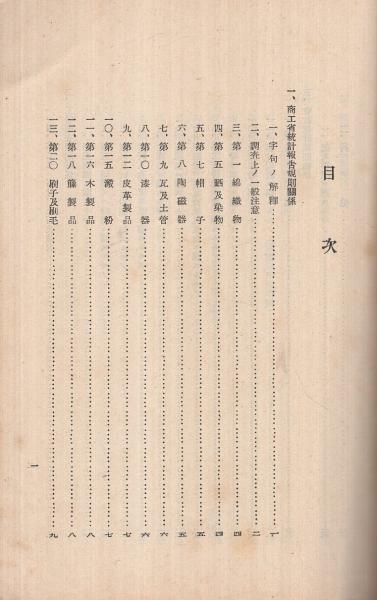 目次
一、商工省統計報告規則關係
一、字句ノ解釋……一
二、調査上ノ一般注意……二
三、第一 綿織物……四
四、第五 晒及染物……四
五、第七 帽子……五
六、第八 陶磁器……五
七、第九 瓦及土管……六
八、第一〇 漆器……六
九、第一二 皮革製品……七
一〇、第一五 澱粉……七
一一、第一六 木製品……八
一二、第一八 簾製品……八
一三、第二〇 刷子及刷毛……九
一